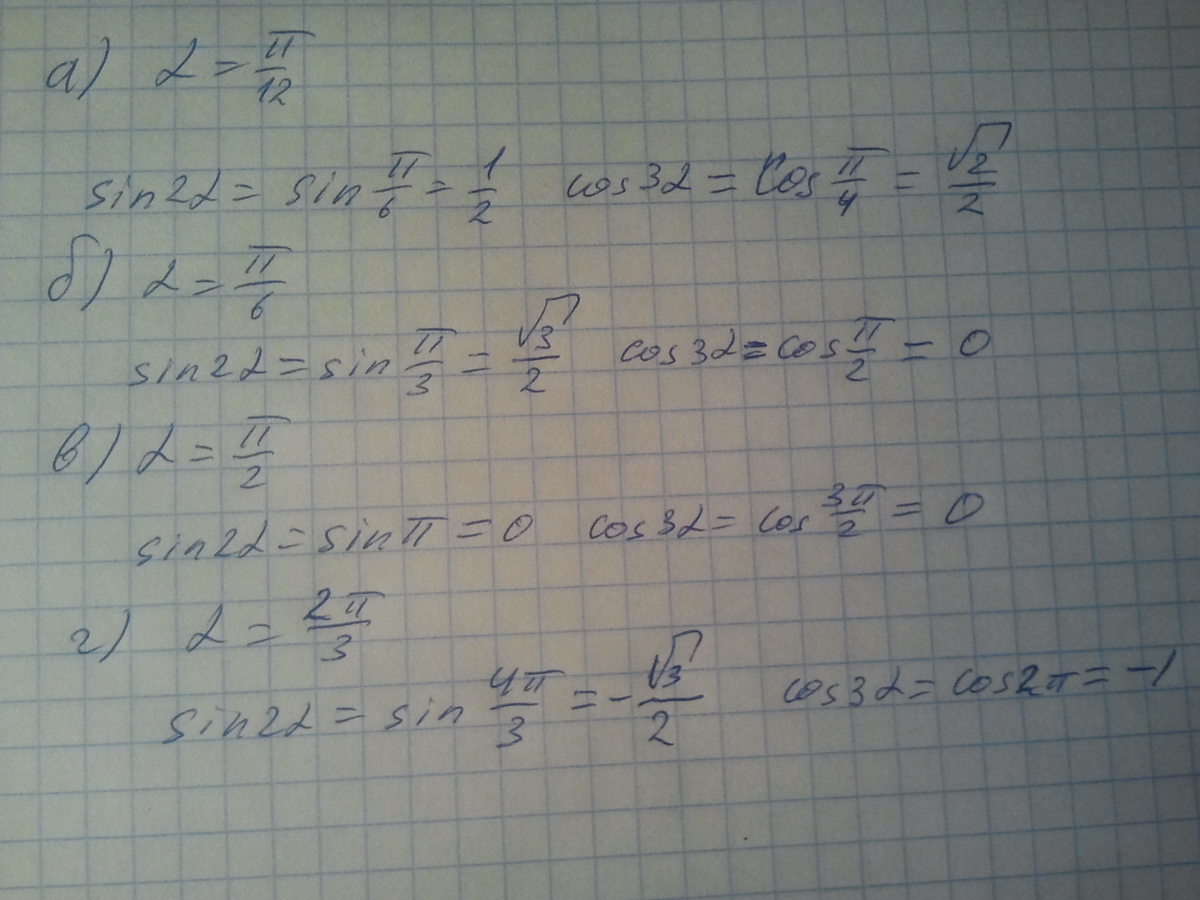 а) α = π/12
sin2α = sin π/6 = 1/2 cos3α = cos π/4 = √2/2
б) α = π/6
sin2α = sin π/3 = √3/2 cos3α = cos π/2 = 0
в) α = π/2
sin2α = sinπ = 0 cos3α = cos 3π/2 = 0
г) α = 2π/3
sin2α = sin 4π/3 = -√3/2 cos3α = cos2π = -1